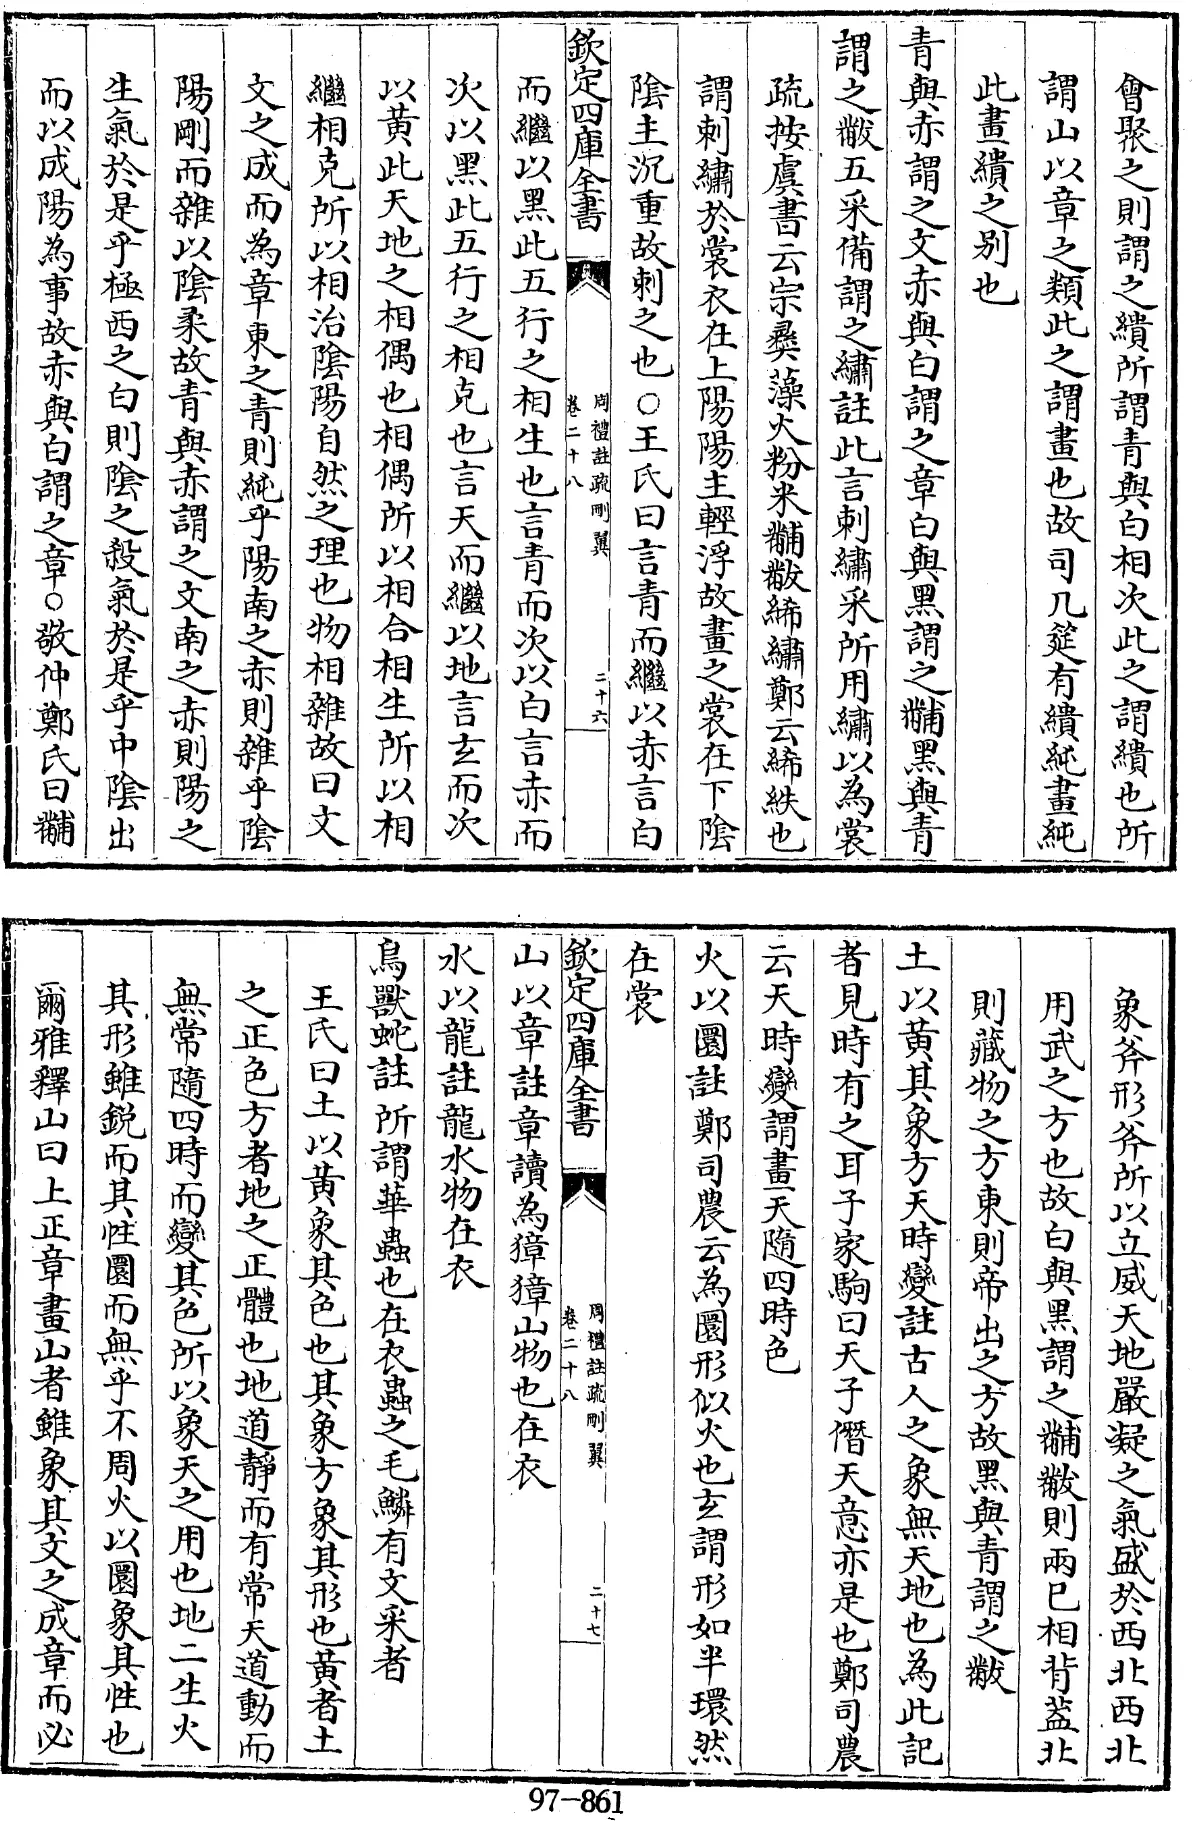 會聚之則謂之繢所謂青與白相次此之謂繢也所
謂山以章之類此之謂畫也故司几筵有繢純畫純
此畫繢之别也
青與赤謂之文赤與白謂之章白與黑謂之黼黑與青
謂之黻五采備謂之繡註此言刺繡采所用繡以為裳
疏按虞書云宗彜藻火粉米黼黻絺繡鄭云絺紩也
謂刺繡於裳衣在上陽陽主輕浮故畫之裳在下陰
陰主沉重故刺之也○王氏曰言青而繼以赤言白
欽定四庫全書
周禮註疏刪翼
卷二十八
二十六
而繼以黑此五行之相生也言青而次以白言赤而
次以黑此五行之相克也言天而繼以地言玄而次
以黄此天地之相偶也相偶所以相合相生所以相
繼相克所以相治陰陽自然之理也物相雜故曰文
文之成而為章東之青則純乎陽南之赤則雜乎陰
陽剛而雜以陰柔故青與赤謂之文南之赤則陽之
生氣於是乎極西之白則陰之殺氣於是乎中陰出
而以成陽為事故赤與白謂之章○敬仲鄭氏曰黼
象斧形斧所以立威天地嚴凝之氣盛於西北西北
用武之方也故白與黑謂之黼黻則兩已相背葢北
則藏物之方東則帝出之方故黑與青謂之黻
土以黄其象方天時變註古人之象無天地也為此記
者見時有之耳子家駒曰天子僭天意亦是也鄭司農
云天時變謂畫天隨四時色
火以圜註鄭司農云為圜形似火也玄謂形如半環然
在裳
欽定四庫全書
周禮註疏刪翼
卷二十八
二十七
山以章註章讀為獐獐山物也在衣
水以龍註龍水物在衣
鳥獸蛇註所謂華蟲也在衣蟲之毛鱗有文采者
王氏曰土以黄象其色也其象方象其形也黄者土
之正色方者地之正體也地道靜而有常天道動而
無常隨四時而變其色所以象天之用也地二生火
其形雖鋭而其性圜而無乎不周火以圜象其性也
爾雅釋山曰上正章畫山者雖象其文之成章而必
97-861